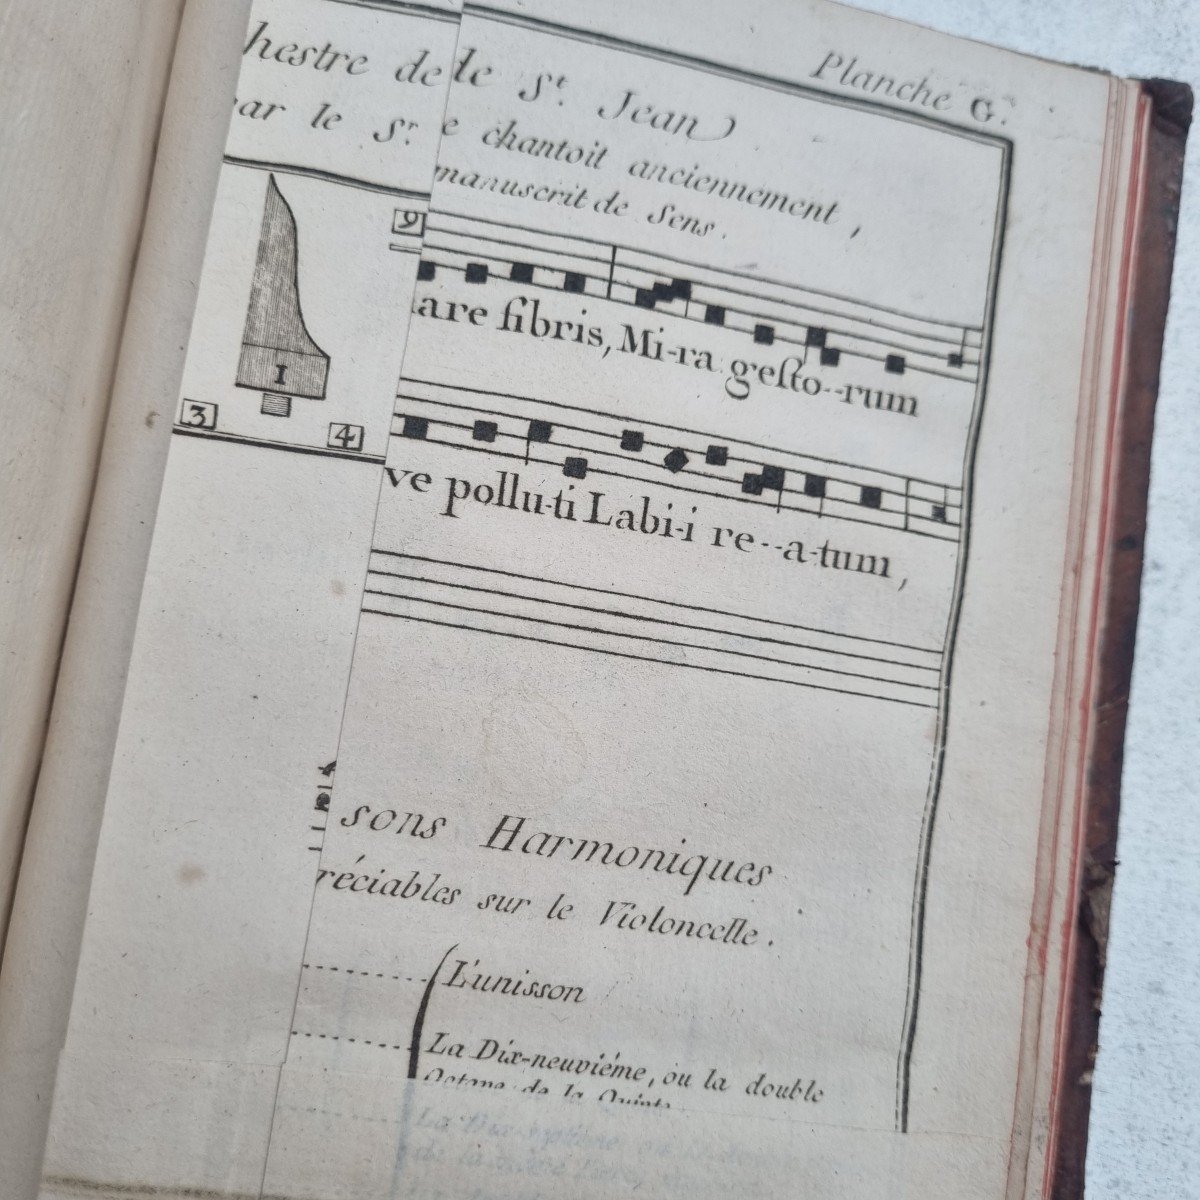 Planche G.
hestre de
ar le Sr.
9
I
3
4
le St. Jean
e chantoit anciennement,
manuscrit de Sens.
are fibris, Mi-ra gesto--rum
ve pollu-ti Labi-i re--a-tum,
sons Harmoniques
réciables sur le Violoncelle.
L'unisson
La Dix-neuviéme, ou la double
Octave de la Quinte